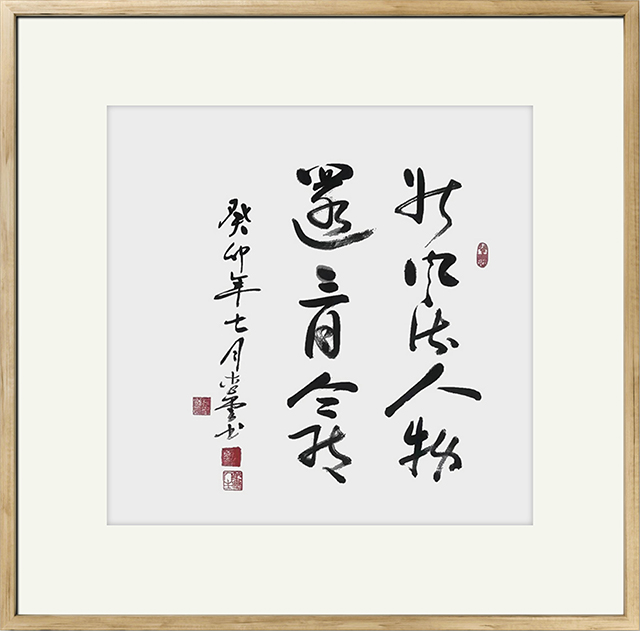 数风流人物
還看今朝
癸卯年七月雲书